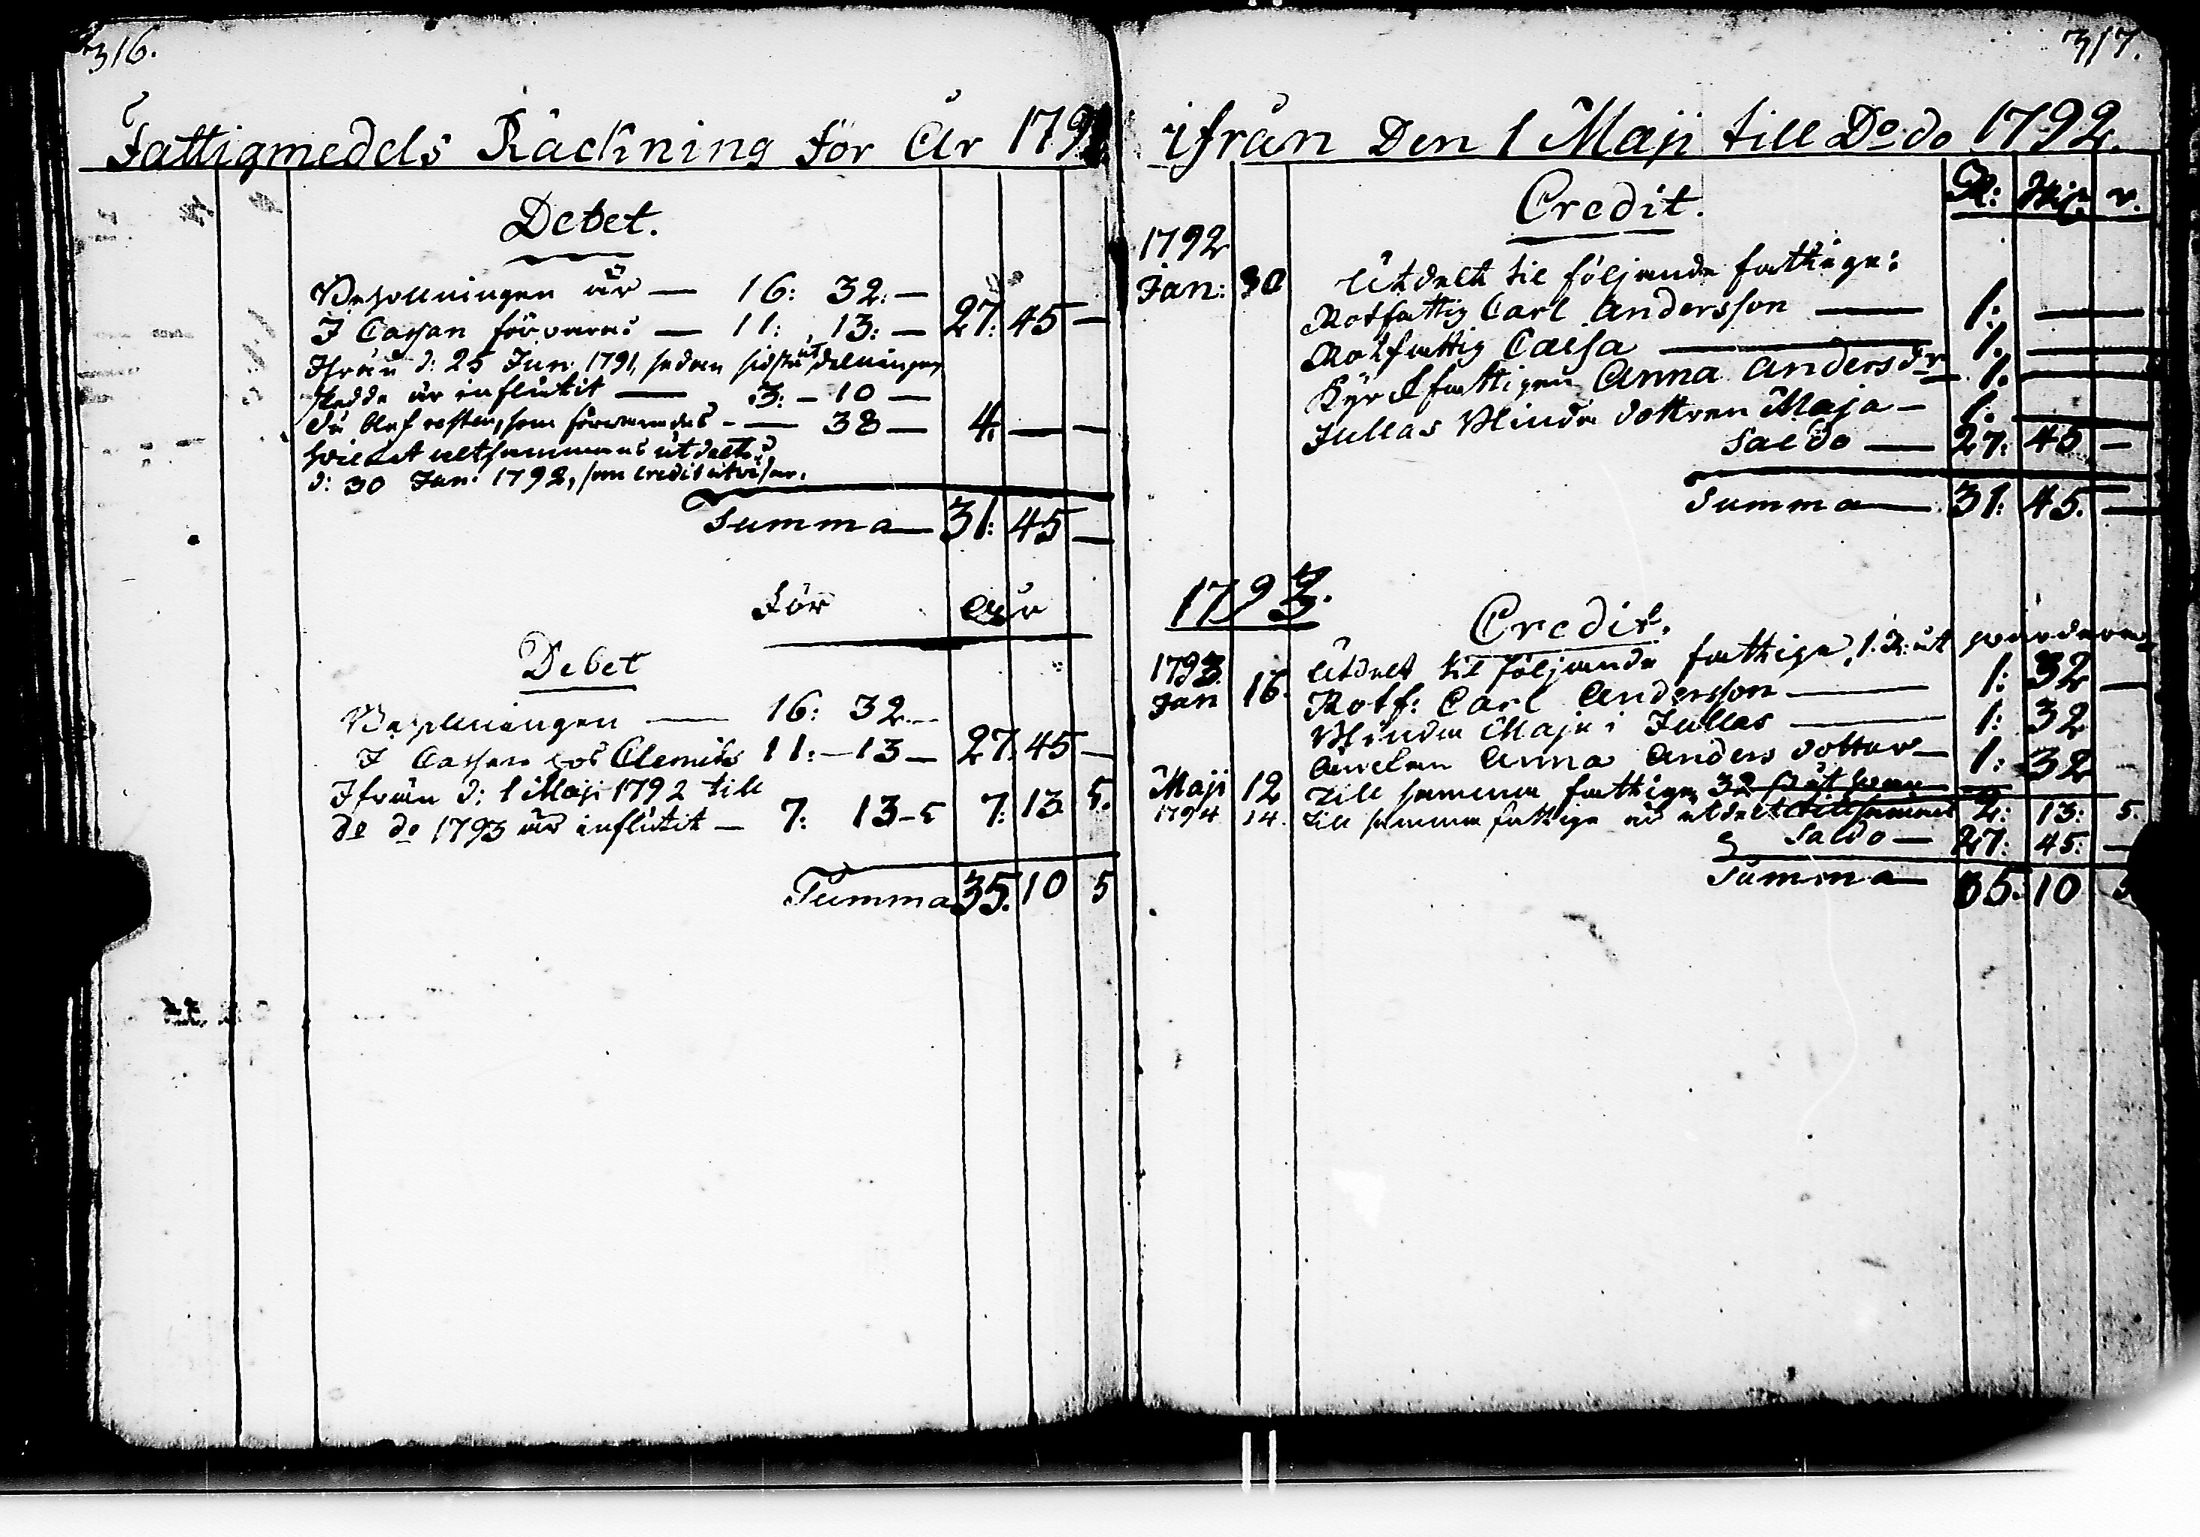 316.
Fattigmedels Räckning För År 1791
Debet.
Behollningen är — 16: 32: —
I Cassan förvaras — 11: 13: — 27: 45 —
Ifrån d: 25 Jun 1791, sedan sidsta utdelningen
skedde är influtit — 3: — 10 —
du blef resten, som förvarades — 38 — 4. — —
hvilcket altsammans utdeltes
d: 30 Jan: 1792, som Credit utviser.
Summa — 31: 45 —
För År
Debet
Behollningen — 16: 32. —
I Cassan hos Clemits 11: — 13 — 27. 45 —
Ifrån d: 1 Maji 1792 till
do do 1793 är influtit — 7: 13 — 5 7: 13 5.
Summa 35. 10 5
317.
ifrån Den 1 Maji till Do do 1792.
Credit. R: sk. r.
1792
Jan: 30 Utdelt til följande fattige:
Rotfattig Carl Andersson — 1: —
Rotfattig Caisa — 1. —
Kyrckfattigen Anna Andersdr — 1. —
Jullas Blinda dottren Maja — 1. —
Saldo — 27: 45 —
Summa — 31: 45. —
1793.
Credit.
1793 Jan 16. Utdelt til följande fattige, 1. R: ut
Rotf: Carl Andersson — 1: 32 —
Blinda Maja i Jullas — 1: 32
Anna Anders dotter — 1: 32
Maji 12 Till samma fattige 32
1794 14. Till samma fattige är utdelt tillsammans 2: 13: 5.
Saldo — 27: 45: —
Summa — 35. 10 5